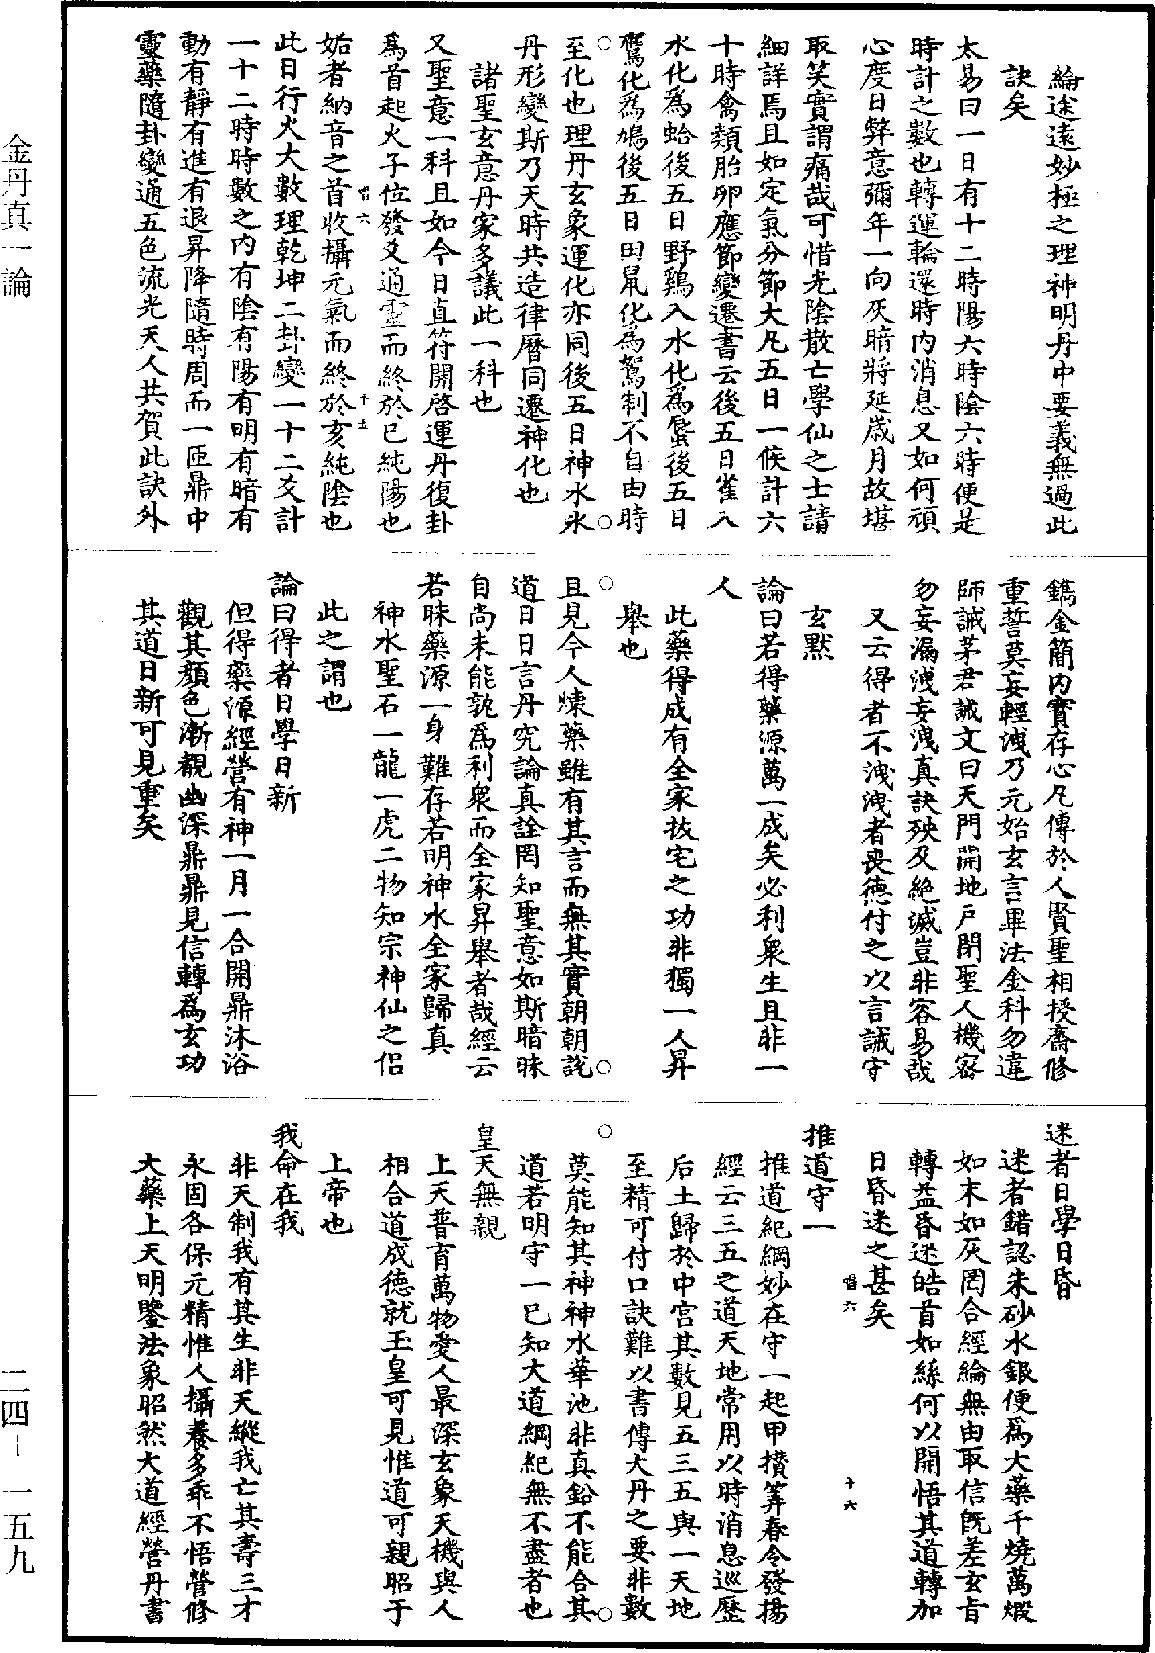 綸途遠妙極之理神明丹中要義無過此
訣矣
太易曰一日有十二時陽六時陰六時便是
時計之數也轉運輪還時內消息又如何頑
心度日弊意彌年一向灰暗將延歲月故堪
取笑實謂痛哉可惜光陰散亡學仙之士請
細詳焉且如定氣分節大凡五日一候計六
十時禽類胎卵應節變遷書云後五日雀入
水化為蛤後五日野鷄入水化為蜃後五日
鷹化為鳩後五日田鼠化為鴽制不自由時
至化也理丹玄象運化亦同後五日神水水
丹形變斯乃天時共造律曆同遷神化也
諸聖玄意丹家多議此一科也
又聖意一科且如今日直符開啓運丹復卦
為首起火子位發爻通靈而終於巳純陽也
姤者納音之首收攝元氣而終於亥純陰也
此日行火大數理乾坤二卦變一十二爻計
一十二時時數之內有陰有陽有明有暗有
動有靜有進有退昇降隨時周而一匝鼎中
靈藥隨卦變通五色流光天人共賀此訣外
鐫金簡內實存心凡傳於人賢聖相授齋修
重誓莫妄輕洩乃元始玄言畢法金科勿違
師誡茅君誡文曰天門開地戶閉聖人機密
勿妄漏洩妄洩真訣殃及絕滅豈非容易哉
又云得者不洩洩者喪德付之以言誡守
玄默
論曰若得藥源萬一成矣必利衆生且非一
人
此藥得成有全家拔宅之功非獨一人昇
舉也
且見今人煉藥雖有其言而無其實朝朝說
道日日言丹究論真詮罔知聖意如斯暗昧
自尚未能孰為利衆而全家昇舉者哉經云
若昧藥源一身難存若明神水全家歸真
神水聖石一龍一虎二物知宗神仙之侶
此之謂也
論曰得者日學日新
但得藥源經營有神一月一合開鼎沐浴
觀其顏色漸覩幽深鼎鼎見信轉為玄功
其道日新可見重矣
迷者日學日昏
迷者錯認朱砂水銀便為大藥千燒萬煆
如末如灰罔合經綸無由取信旣差玄旨
轉益昏迷皓首如絲何以開悟其道轉加
日昏迷之甚矣
推道守一
推道紀綱妙在守一起甲攅筭春令發揚
經云三五之道天地常用以時消息巡歷
后土歸於中宮其數見五三五與一天地
至精可付口訣難以書傳大丹之要非數
莫能知其神神水華池非真鉛不能合其
道若明守一已知大道綱紀無不盡者也
皇天無親
上天普育萬物愛人最深玄象天機與人
相合道成德就玉皇可見惟道可親昭于
上帝也
我命在我
非天制我有其生非天縱我亡其壽三才
永固各保元精惟人攝養多乖不悟營修
大藥上天明鑒法象昭然大道經營丹書
金丹真一論
二四－一五九
十五
十六